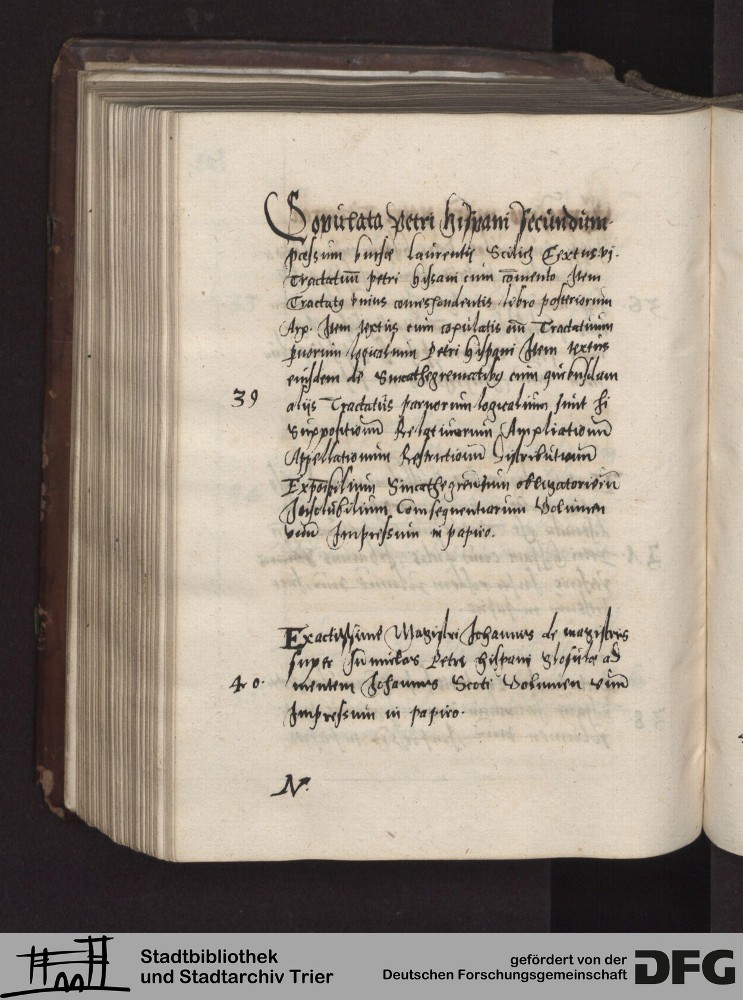 Copulata Petri hispani secundum
processum bursae laurentii Scilicet Textus vj.
Tractatuum petri hispani cum comento Item
Tractatus vnius correspondentis libro posteriorum
Item textus cum copulatis Tractatuum
paruorum logicalium Petri hispani Item textus
eiusdem de Sincathegrematibus cum quibusdam
39
alijs Tractatus paruorum logicalium sunt hi
Suppositionum Relatiuorum Ampliationum
Appellationum Restrictionum Distributionum
Exponibilium Sincathegrematum obligatoriorum
Insolubilium Consequentiarum Volumen
vnum Impressum in papiro.
Exactissime Magistri Johannis de magistris
super Summulas Petri hispani Glosulae ad
40. mentem Johannis Scoti Volumen vnum
Impressum in papiro.
N.
Stadtbibliothek
und Stadtarchiv Trier
gefördert von der
Deutschen Forschungsgemeinschaft
DFG